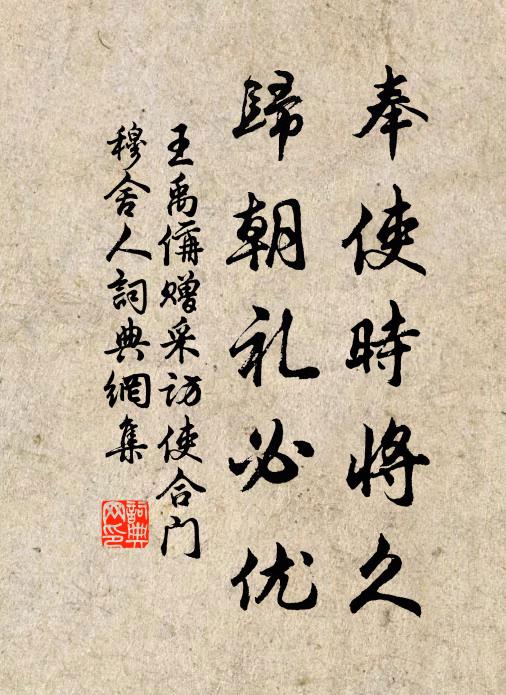 奉使時將久
歸朝礼必优
王禹偁贈采访使合门
穆舍人詞典網集
詞典网印